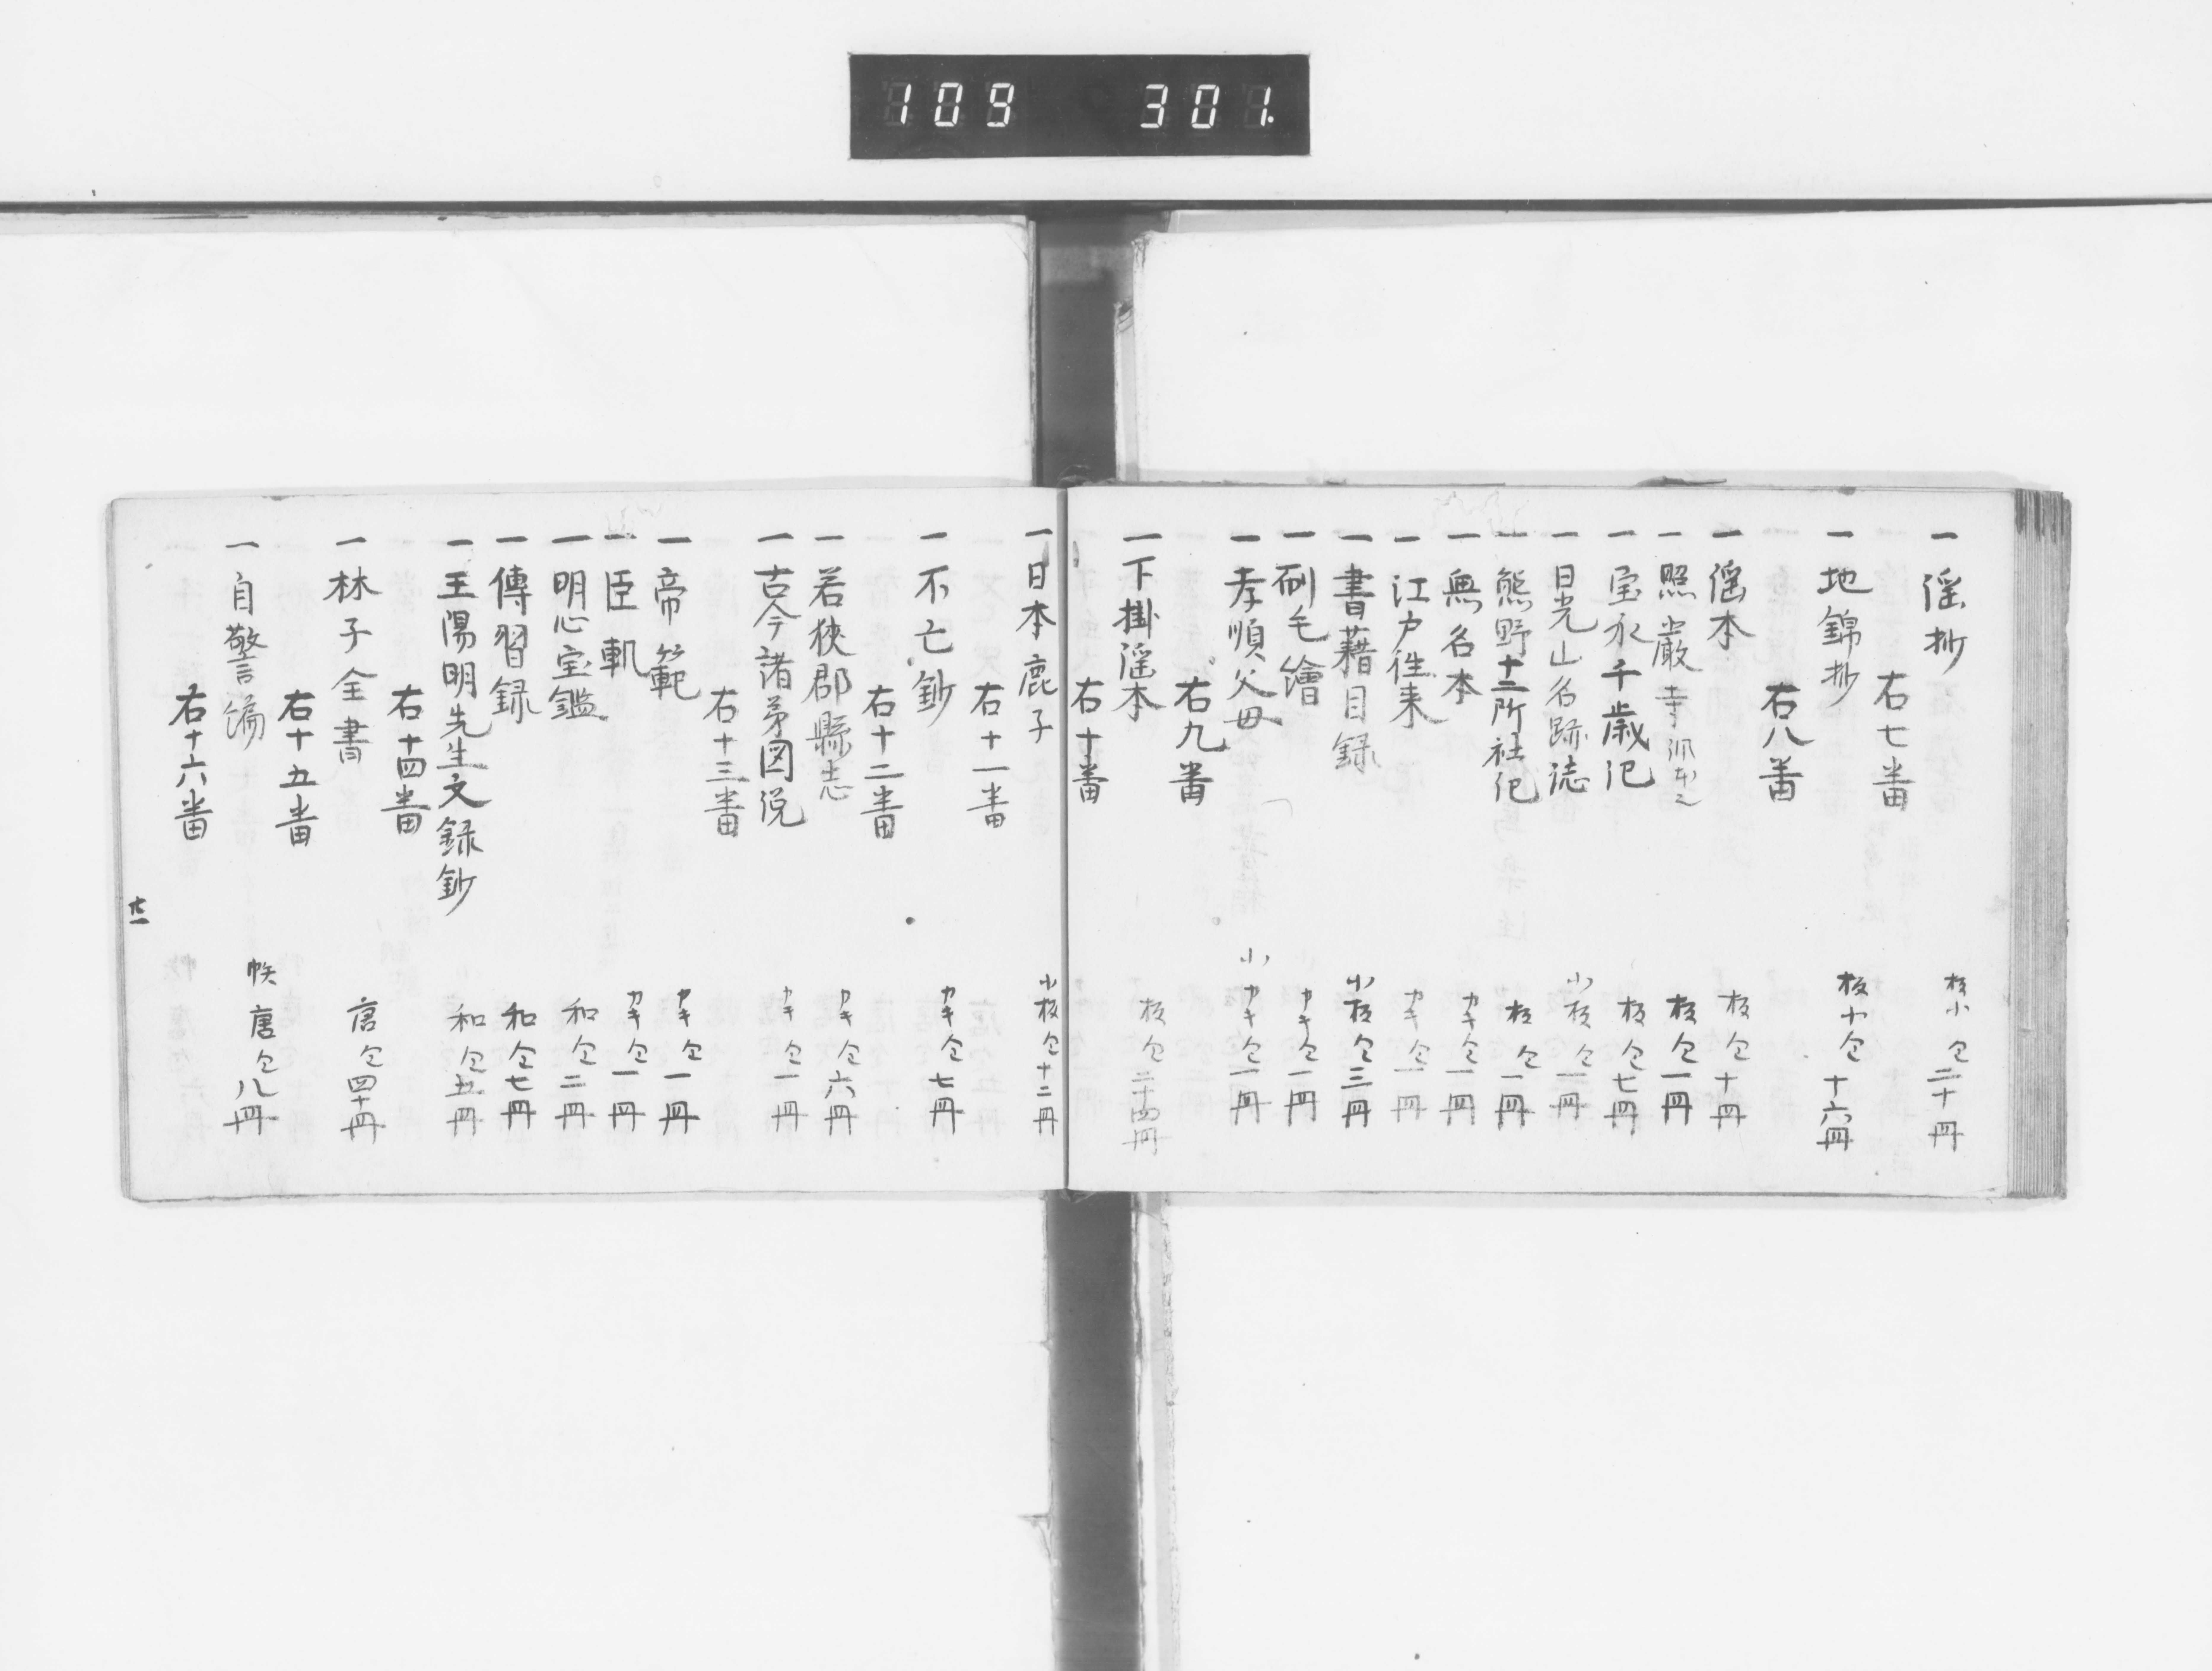 109 301.
一 謡抄 板小仝二十冊
右七番
一 地錦抄 板小仝十六冊
右八番
一 謡本 板仝十冊
一 照巖寺 板仝一冊
一 宝永千歳記 板仝七冊
一 日光山名跡誌 小板仝一冊
一 熊野十二所社記 板仝一冊
一 無名本 カキ仝一冊
一 江戸往来 カキ仝一冊
一 書藉目録 小板仝三冊
一 刷毛繪 カキ仝一冊
一 孝順父母 小カキ仝一冊
右九番
一 下掛謡本 板仝二十四冊
右十番
一 日本鹿子 小板仝十二冊
右十一番
一 不亡鈔 カキ仝七冊
右十二番
一 若狹郡縣志 カキ仝六冊
一 古今諸弟図説 カキ仝一冊
右十三番
一 帝範 カキ仝一冊
一 臣軌 カキ仝一冊
一 明心宝鑑 和仝二冊
一 傳習録 和仝七冊
一 王陽明先生文録鈔 和仝五冊
右十四番
一 林子全書 唐仝四十冊
右十五番
一 自警編 帙唐仝八冊
右十六番